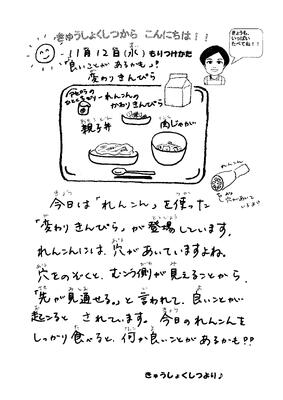 きゅうしょくしつから こんにちは!!
きょうも、
いっぱい
たべてね!!
11月12日(水) もりつけかた
「良いことが あるかも♪」
変わりきんぴら
れんこんの
かわりきんぴら
親子丼
肉じゃが
れんこん
穴があいて
いるよ
今日は「れんこん」を使った
「変わりきんぴら」が登場しています。
れんこんには、穴があいていますよね。
穴をのぞくと、むこう側が見えることから、
「先が見通せる。」と言われて、良いことが
起こるとされています。今日のれんこんを
しっかり食べると、何か良いことがあるかも!?
きゅうしょくしつより♪